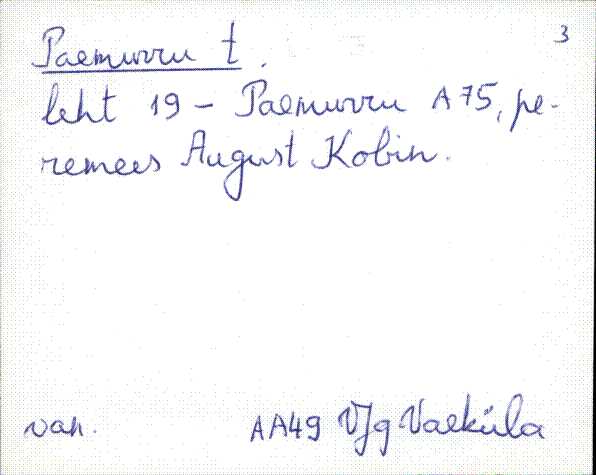 3
Paemurru t.
leht 19 – Paemurru A75, pe-
remees August Kobin.
van. AA49 VJg Vaeküla